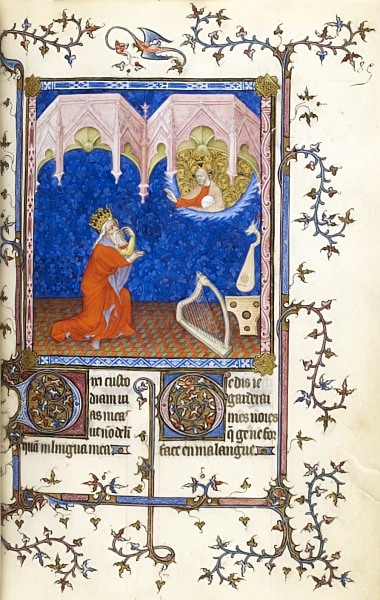 Dixi custo
diam ui
as mea
ut nõ deli
qua in lingua mea
e dis ie
garderai
mes uoies
q ge ne for
face en ma langue